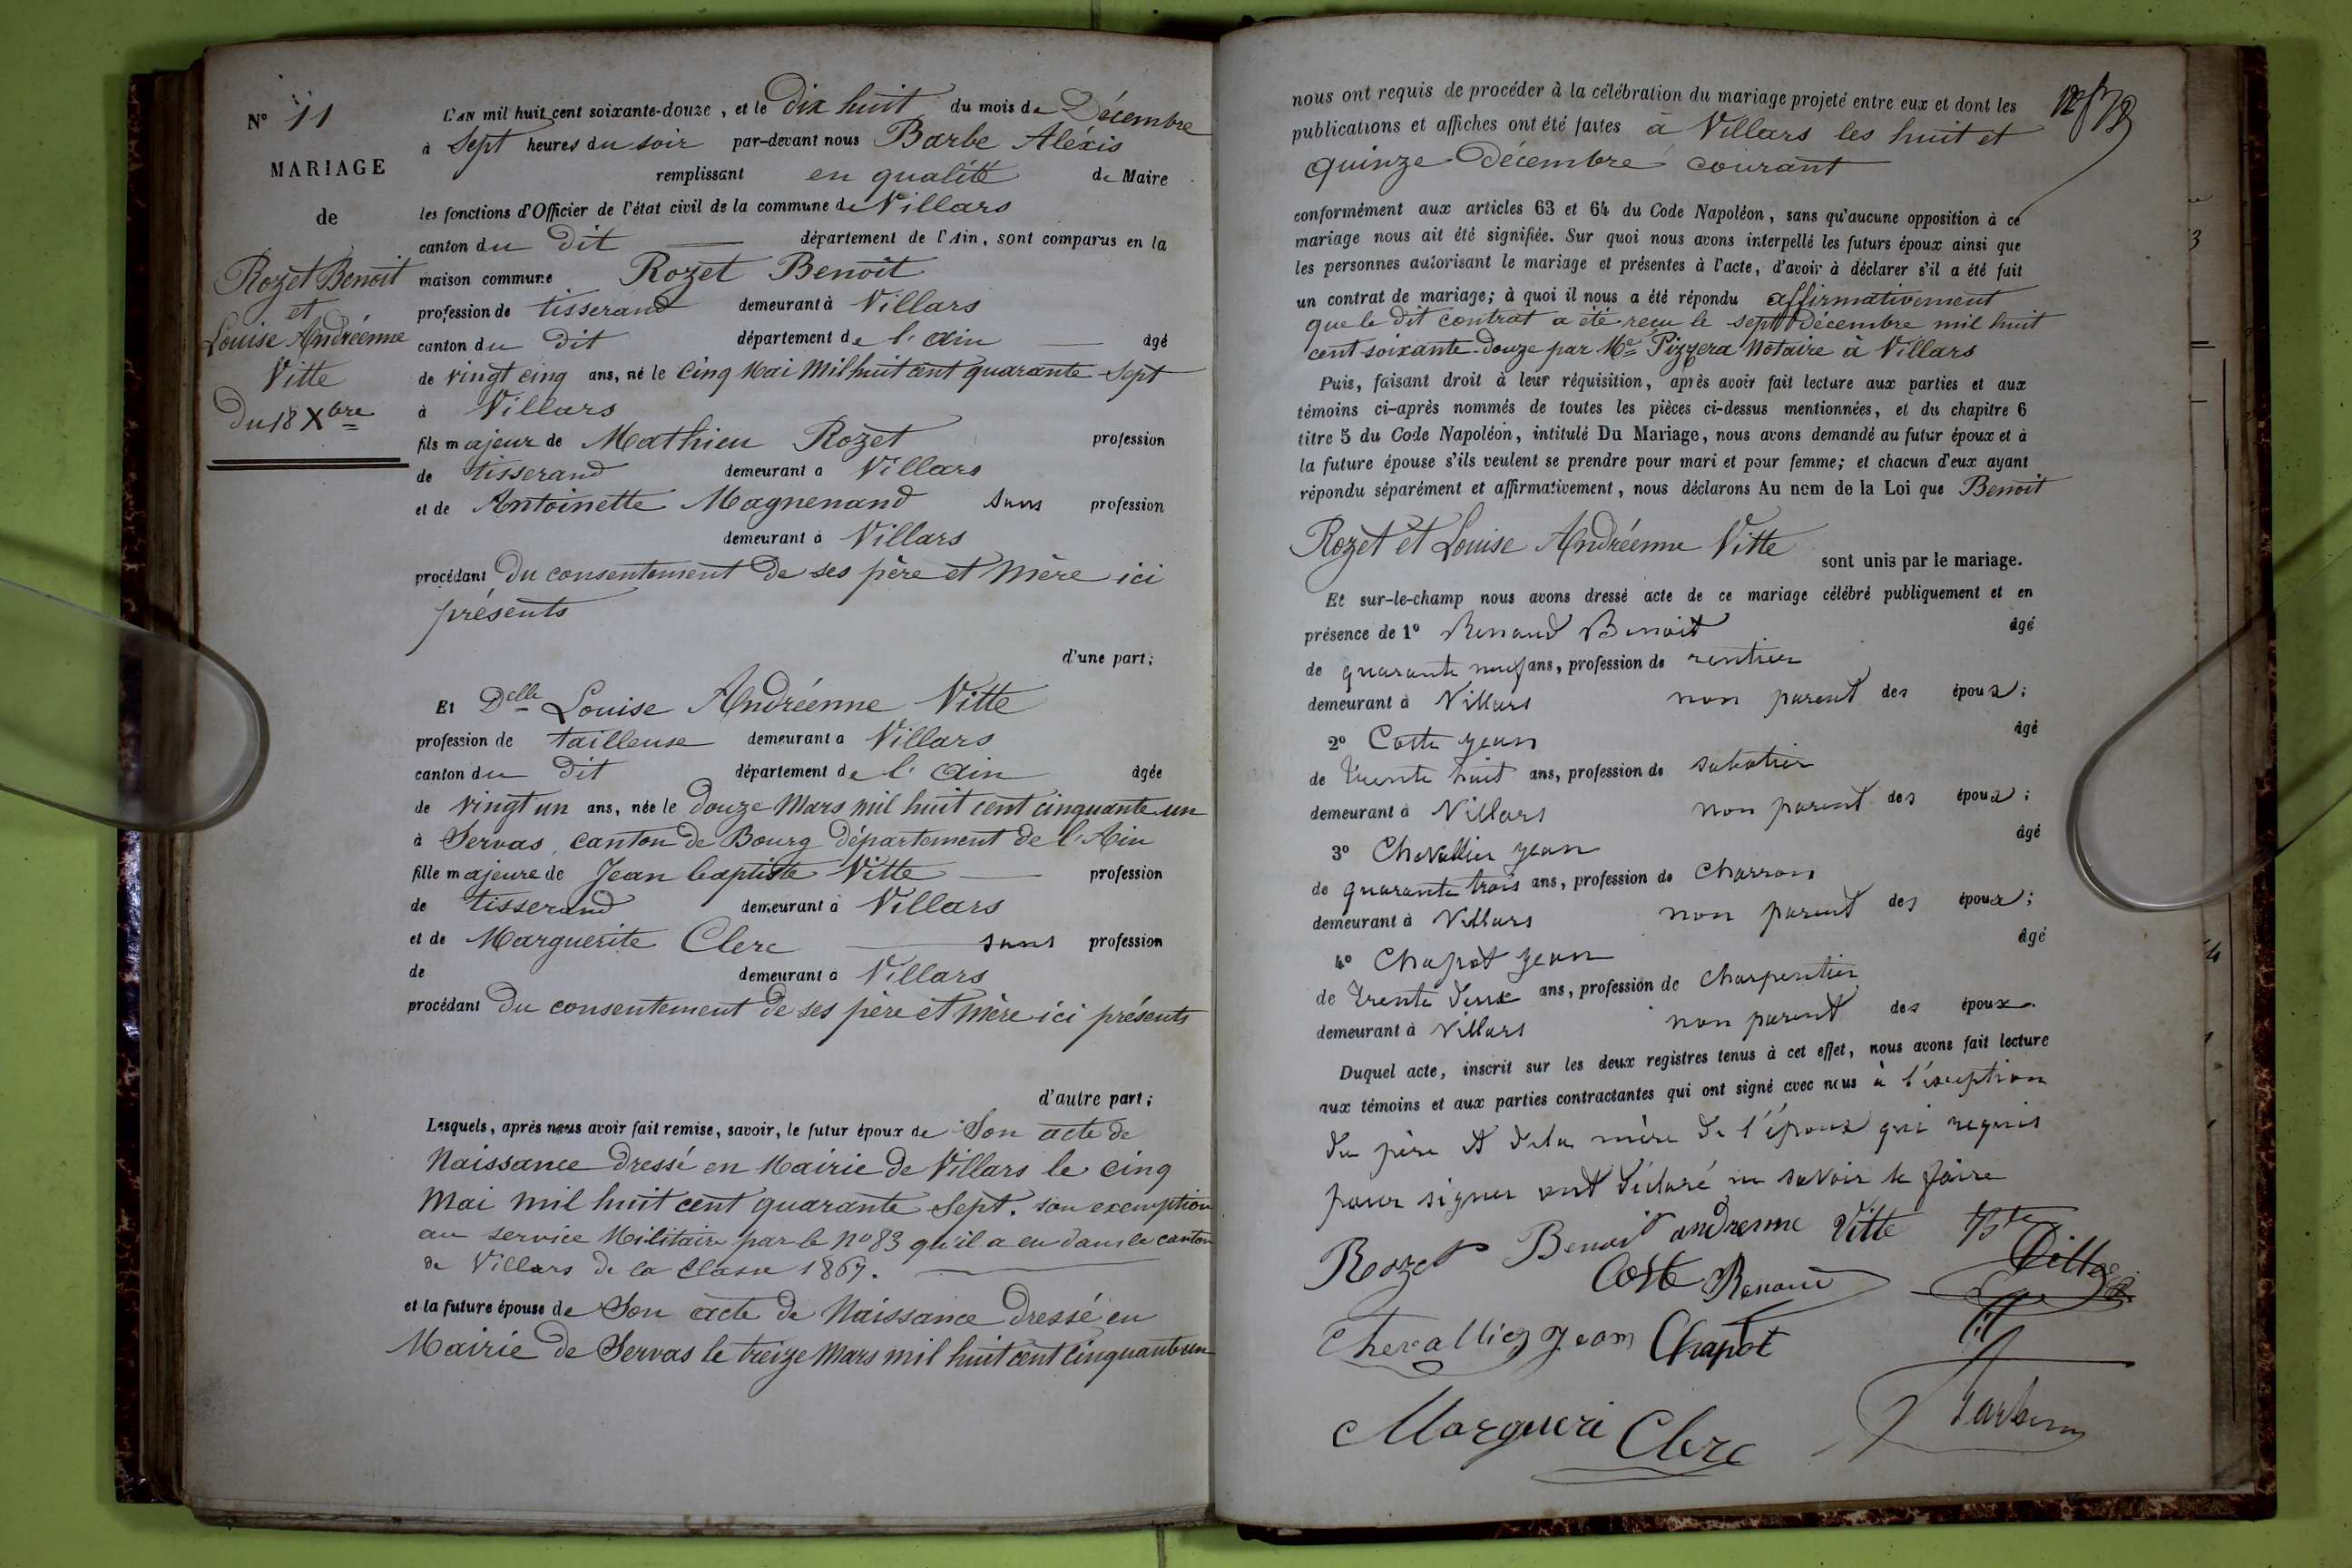 N° 11
MARIAGE
de
Rozet Benoit
et
Louise Andréenne
Vitte
Du 18 Xbre
L'AN mil huit cent soixante-douze, et le Dix huit du mois de Décembre
à Sept heures du soir par-devant nous Barbe Aléxis
remplissant en qualité de Maire
les fonctions d'Officier de l'état civil de la commune de Villars
canton du dit département de l'Ain, sont comparus en la
maison commune Rozet Benoit
profession de tisserand demeurant à Villars
canton du dit département de l'ain âgé
de vingt cinq ans, né le Cinq Mai Mil huit cent quarante Sept
à Villars
fils majeur de Mathieu Rozet profession
de tisserand demeurant à Villars
et de Antoinette Magnenand sans profession
demeurant à Villars
procédant Du consentement De ses père et Mère ici
présents
d'une part;
Et Delle Louise Andréenne Vitte
profession de tailleuse demeurant à Villars
canton du dit département de l'ain âgée
de vingt un ans, née le douze Mars mil huit cent cinquante-un
à Servas, canton de Bourg Département de l'Ain
fille majeure de Jean baptiste Vitte profession
de tisserand demeurant à Villars
et de Marguerite Clerc sans profession
de demeurant à Villars
procédant Du consentement De ses père et Mère ici présents
d'autre part;
Lesquels, après nous avoir fait remise, savoir, le futur époux de Son acte de
Naissance Dressé en Mairie de Villars le cinq
Mai mil huit cent quarante Sept. son exemption
au service Militaire par le No 83 qu'il a eu dans le canton
de Villars de la Classe 1867.
et la future épouse de Son acte de Naissance Dressé en
Mairie de Servas le treize Mars mil huit cent cinquante un
nous ont requis de procéder à la célébration du mariage projeté entre eux et dont les
publications et affiches ont été faites à Villars les huit et
quinze Décembre courant
conformément aux articles 63 et 64 du Code Napoléon, sans qu'aucune opposition à ce
mariage nous ait été signifiée. Sur quoi nous avons interpellé les futurs époux ainsi que
les personnes autorisant le mariage et présentes à l'acte, d'avoir à déclarer s'il a été fait
un contrat de mariage; à quoi il nous a été répondu affirmativement
que le dit contrat a été reçu le sept Décembre mil huit
cent soixante-Douze par Me Pizzera Notaire à Villars
Puis, faisant droit à leur réquisition, après avoir fait lecture aux parties et aux
témoins ci-après nommés de toutes les pièces ci-dessus mentionnées, et du chapitre 6
titre 5 du Code Napoléon, intitulé Du Mariage, nous avons demandé au futur époux et à
la future épouse s'ils veulent se prendre pour mari et pour femme; et chacun d'eux ayant
répondu séparément et affirmativement, nous déclarons Au nom de la Loi que Benoit
Rozet et Louise Andréenne Vitte sont unis par le mariage.
Et sur-le-champ nous avons dressé acte de ce mariage célébré publiquement et en
présence de 1° Renaud Benoit âgé
de quarante neuf ans, profession de rentier
demeurant à Villars non parent des époux;
2° Coste Jean âgé
de trente huit ans, profession de sabotier
demeurant à Villars non parent des époux;
3° Chevallier Jean âgé
de quarante trois ans, profession de charron
demeurant à Villars non parent des époux;
4° Chapot Jean âgé
de trente deux ans, profession de charpentier
demeurant à Villars non parent des époux.
Duquel acte, inscrit sur les deux registres tenus à cet effet, nous avons fait lecture
aux témoins et aux parties contractantes qui ont signé avec nous à l'exception
du père et de la mère de l'époux qui requis
pour signer ont déclaré ne savoir le faire
Rozet Benoit andrenne Vitte
Coste Renaud
Chevallier Jean Chapot
Margueri Clerc